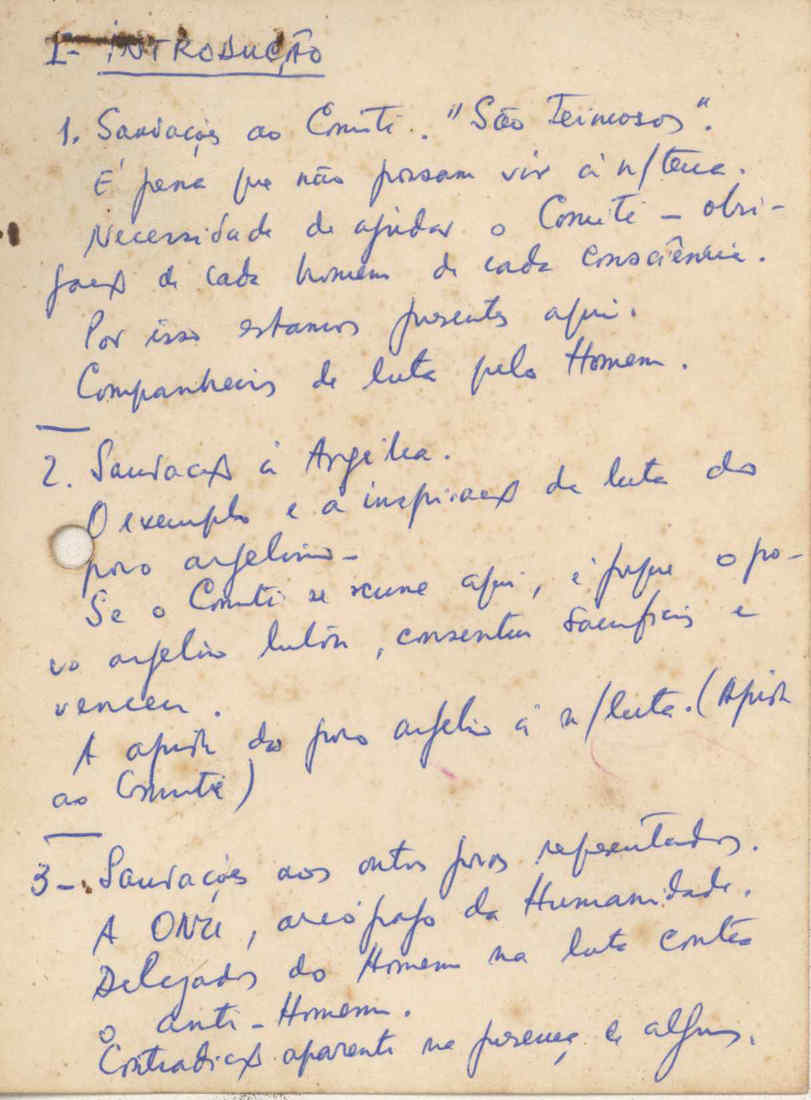 I- INTRODUÇÃO
1. Saudações ao Comité. "São Teimosos".
É pena que não possam vir à n/terra.
Necessidade de ajudar o Comité – obri-
gação de cada homem de cada consciência.
Por isso estamos presentes aqui.
Companheiros de luta pelo Homem.
2. Saudação à Argélia.
O exemplo e a inspiração da luta do
povo argelino –
Se o Comité se reune aqui, é porque o po-
vo argelino lutou, consentiu sacrifícios e
venceu.
A apoio do povo argelino à n/luta. (Apoio
ao Comité)
3 - Saudações aos outros povos representados.
A ONU, areópago da Humanidade.
Delegados do Homem na luta contra
o anti-Homem.
Contradição aparente na presença de alguns.